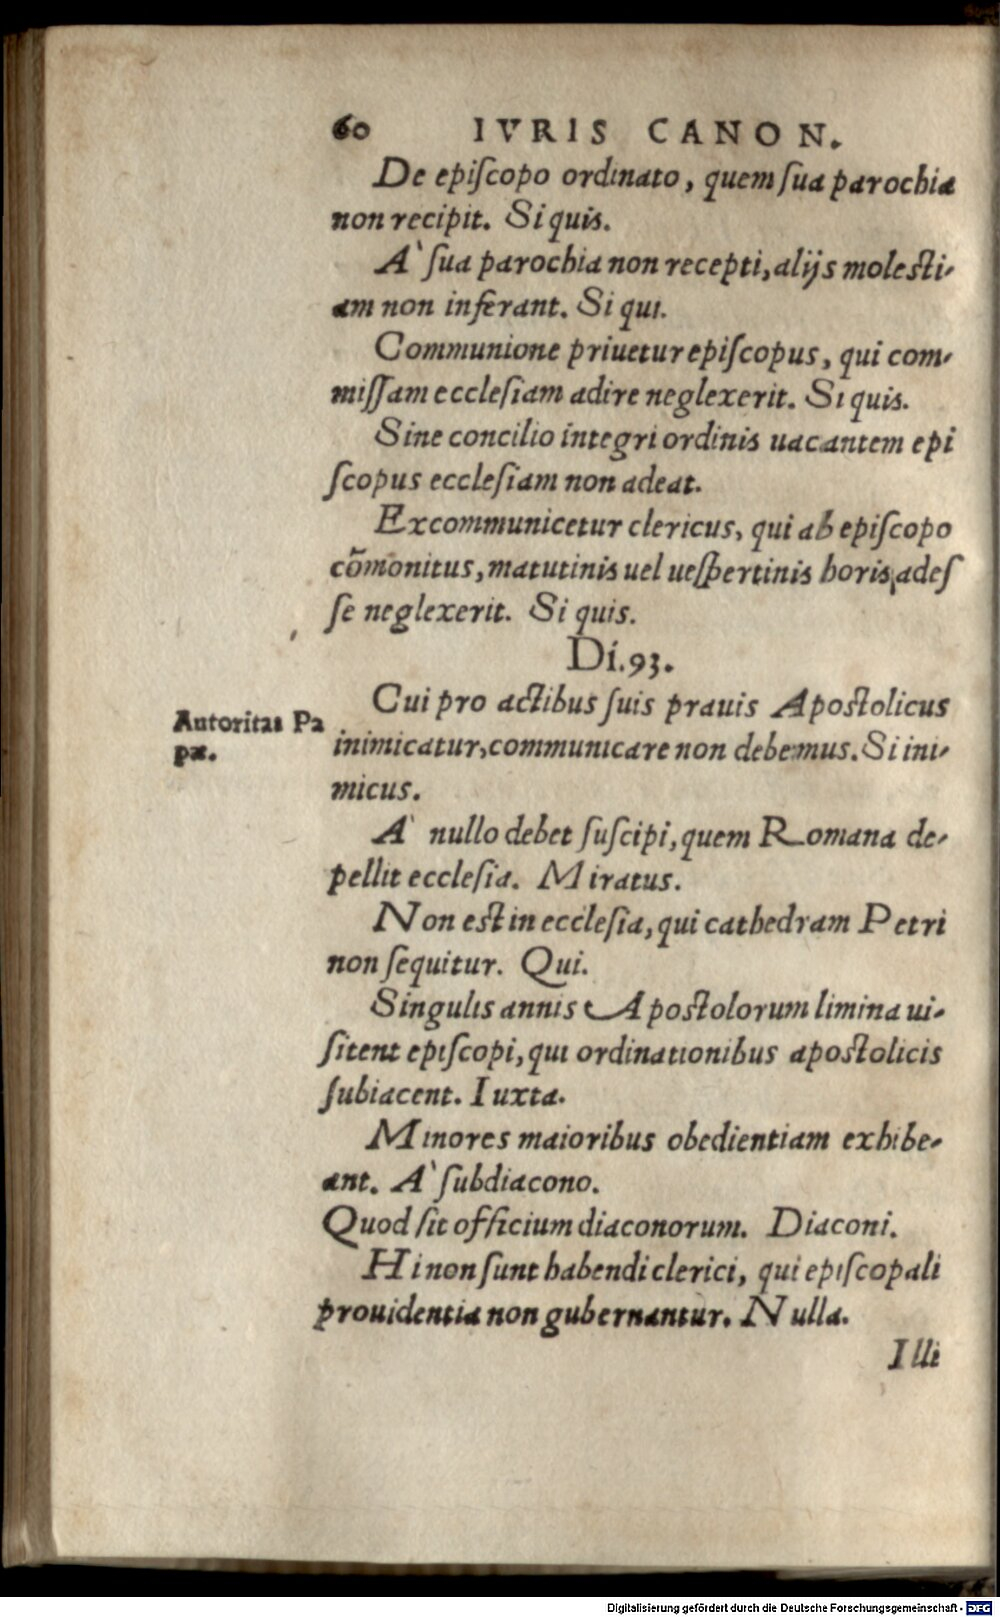 60 IVRIS CANON.
De episcopo ordinato, quem sua parochia
non recipit. Si quis.
A` sua parochia non recepti, alijs molesti-
am non inferant. Si qui.
Communione priuetur episcopus, qui com-
missam ecclesiam adire neglexerit. Si quis.
Sine concilio integri ordinis uacantem epi
scopus ecclesiam non adeat.
Excommunicetur clericus, qui ab episcopo
cõmonitus, matutinis uel uespertinis horis, ades
se neglexerit. Si quis.
Di. 93.
Cui pro actibus suis prauis Apostolicus
Autoritas Pa
pæ.
inimicatur, communicare non debemus. Si ini-
micus.
A` nullo debet suscipi, quem Romana de-
pellit ecclesia. Miratus.
Non est in ecclesia, qui cathedram Petri
non sequitur. Qui.
Singulis annis Apostolorum limina ui-
sitent episcopi, qui ordinationibus apostolicis
subiacent. Iuxta.
Minores maioribus obedientiam exhibe-
ant. A` subdiacono.
Quod sit officium diaconorum. Diaconi.
Hi non sunt habendi clerici, qui episcopali
prouidentia non gubernantur. Nulla.
Illi
Digitalisierung gefördert durch die Deutsche Forschungsgemeinschaft - DFG